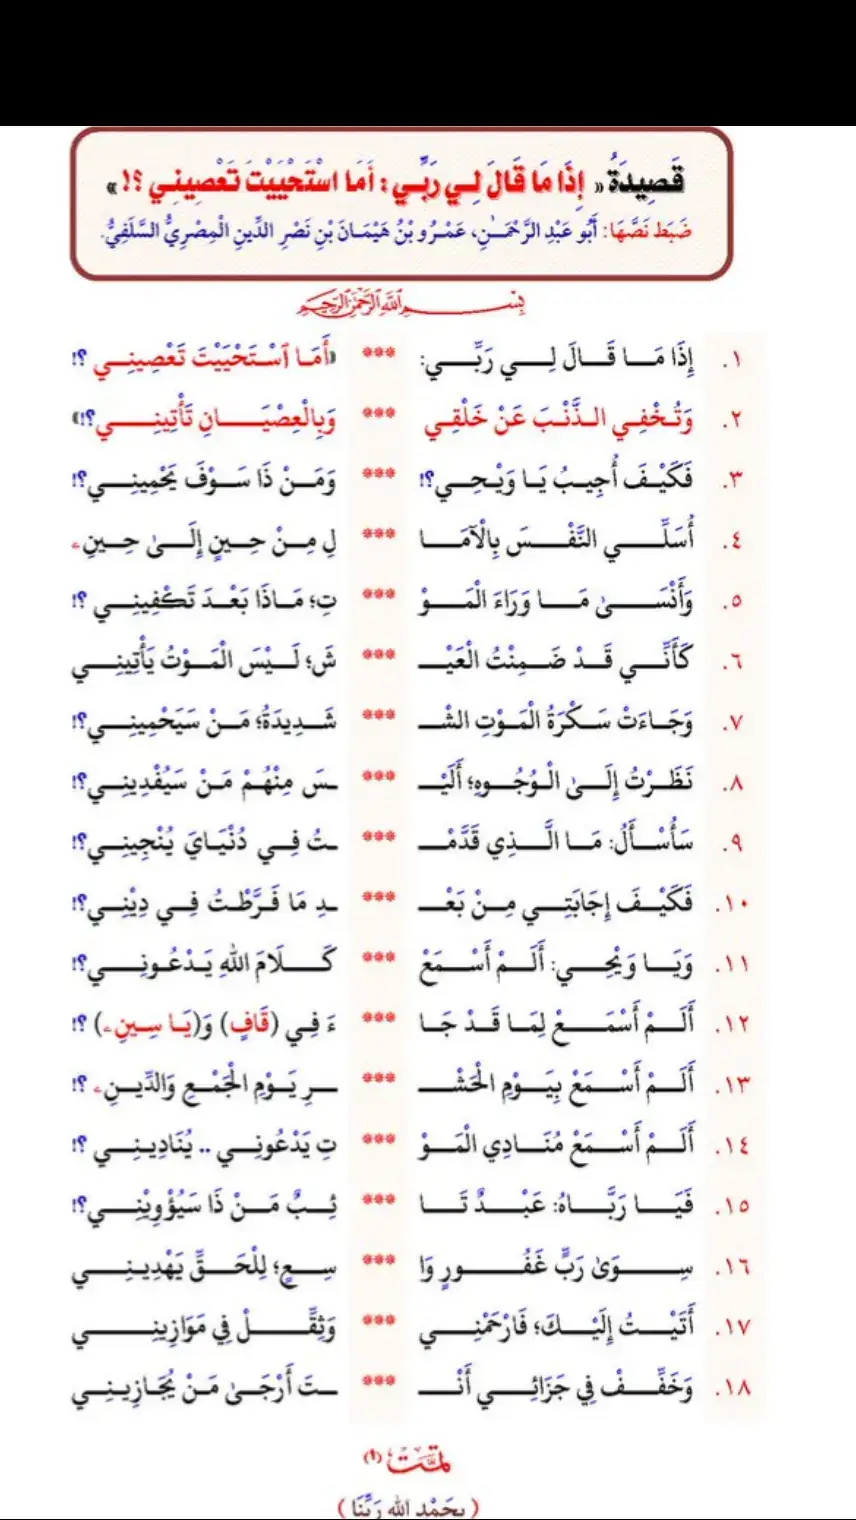 قَصِيدَةُ « إِذَا مَا قَالَ لِي رَبِّي : أَمَا اسْتَحْيَيْتَ تَعْصِينِي ؟! »
ضَبَطَ نَصَّهَا: أَبُو عَبْدِ الرَّحْمَـٰنِ، عَمْرُو بْنُ هَيْمَانَ بْنِ نَصْرِ الدِّينِ الْمِصْرِيُّ السَّلَفِيُّ.
بِسْمِ اللَّهِ الرَّحْمَٰنِ الرَّحِيمِ
١. إِذَا مَا قَالَ لِي رَبِّي: *** «أَمَا ٱسْتَحْيَيْتَ تَعْصِينِي ؟!
٢. وَتُخْفِي الذَّنْبَ عَنْ خَلْقِي *** وَبِالْعِصْيَانِ تَأْتِينِي؟!»
٣. فَكَيْفَ أُجِيبُ يَا وَيْحِي؟! *** وَمَنْ ذَا سَوْفَ يَحْمِينِي؟!
٤. أُسَلِّي النَّفْسَ بِالْآمَا *** لِ مِنْ حِينٍ إِلَىٰ حِينِے
٥. وَأَنْسَىٰ مَا وَرَاءَ الْمَوْ *** تِ؛ مَاذَا بَعْدَ تَكْفِينِي ؟!
٦. كَأَنِّي قَدْ ضَمِنْتُ الْعَيْـ *** شَ؛ لَيْسَ الْمَوْتُ يَأْتِينِي
٧. وَجَاءَتْ سَكْرَةُ الْمَوْتِ الشْـ *** شَدِيدَةُ؛ مَنْ سَيَحْمِينِي؟!
٨. نَظَرْتُ إِلَىٰ الْوُجُوهِ؛ أَلَيْـ *** ـسَ مِنْهُمْ مَنْ سَيُفْدِينِي؟!
٩. سَأُسْأَلُ: مَا الَّذِي قَدَّمْـ *** ـتُ فِي دُنْيَايَ يُنْجِينِي؟!
١٠. فَكَيْفَ إِجَابَتِي مِنْ بَعْـ *** ـدِ مَا فَرَّطْتُ فِي دِيْنِي؟!
١١. وَيَا وَيْحِي: أَلَمْ أَسْمَعْ *** كَلَامَ اللهِ يَدْعُونِي؟!
١٢. أَلَمْ أَسْمَعْ لِمَا قَدْ جَا *** ءَ فِي (قَافٍ) وَ(يَا سِينِے) ؟!
١٣. أَلَمْ أَسْمَعْ بِيَوْمِ الْحَشْـ *** ـرِ يَوْمِ الْجَمْعِ وَالدِّينِے ؟!
١٤. أَلَمْ أَسْمَعْ مُنَادِي الْمَوْ *** تِ يَدْعُونِي .. يُنَادِينِي ؟!
١٥. فَيَا رَبَّاهُ: عَبْدٌ تَا *** ئِبٌ مَنْ ذَا سَيُؤْوِيْنِي؟!
١٦. سِوَىٰ رَبٍّ غَفُورٍ وَا *** سِعٍ؛ لِلْحَقِّ يَهْدِينِي
١٧. أَتَيْتُ إِلَيْكَ؛ فَارْحَمْنِي *** وَثَقِّلْ فِي مَوَازِينِي
١٨. وَخَفِّفْ فِي جَزَائِي أَنْـ *** ـتَ أَرْجَىٰ مَنْ يُجَازِينِي
تَمَّتْ؛ (١)
( بِحَمْدِ اللهِ رَبِّنَا )